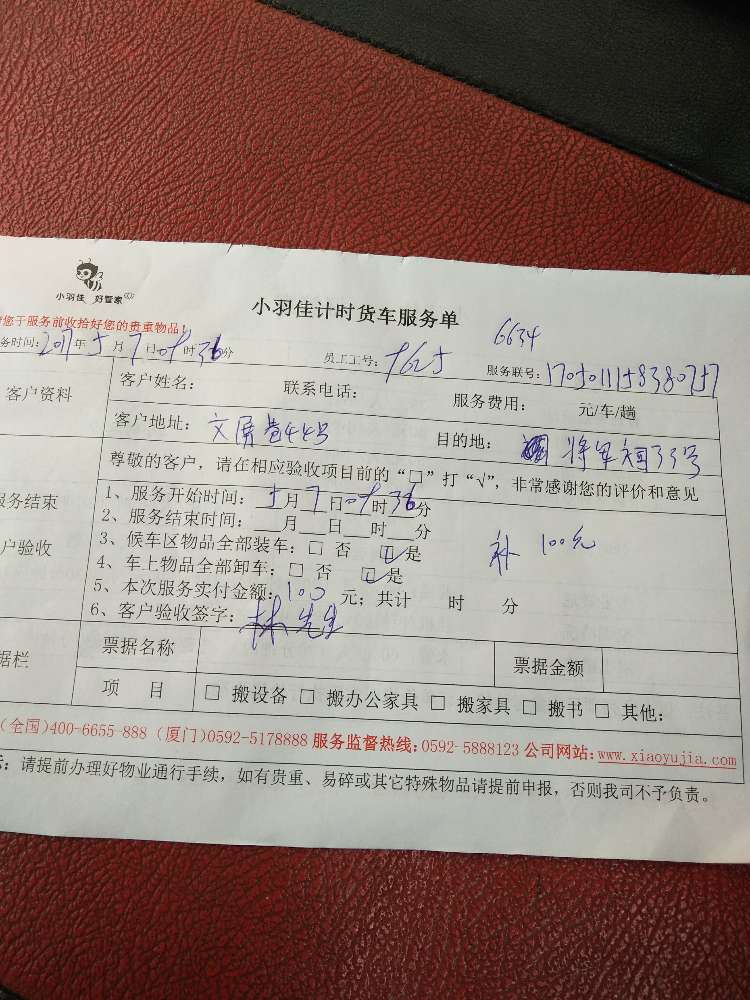 小羽佳 好管家
小羽佳计时货车服务单
6634
您于服务前收拾好您的贵重物品！
务时间：2017年5月7日 时36分 员工工号： 服务联号：
客户资料
客户姓名： 联系电话： 服务费用： 元/车/趟
客户地址：文屏巷44号 目的地：将军祠33号
服务结束
户验收
尊敬的客户，请在相应验收项目前的“□”打“√”，非常感谢您的评价和意见
1、服务开始时间：5月7日 时36分
2、服务结束时间：__月__日__时__分
3、候车区物品全部装车：□ 否 ☑是
补 100元
4、车上物品全部卸车：□ 否 ☑是
5、本次服务实付金额：100元；共计 时 分
6、客户验收签字：林先生
据栏
票据名称 票据金额
项 目 □ 搬设备 □ 搬办公家具 □ 搬家具 □ 搬书 □ 其他：
(全国)400-6655-888 (厦门)0592-5178888 服务监督热线：0592-5888123 公司网站：www.xiaoyujia.com
：请提前办理好物业通行手续，如有贵重、易碎或其它特殊物品请提前申报，否则我司不予负责。